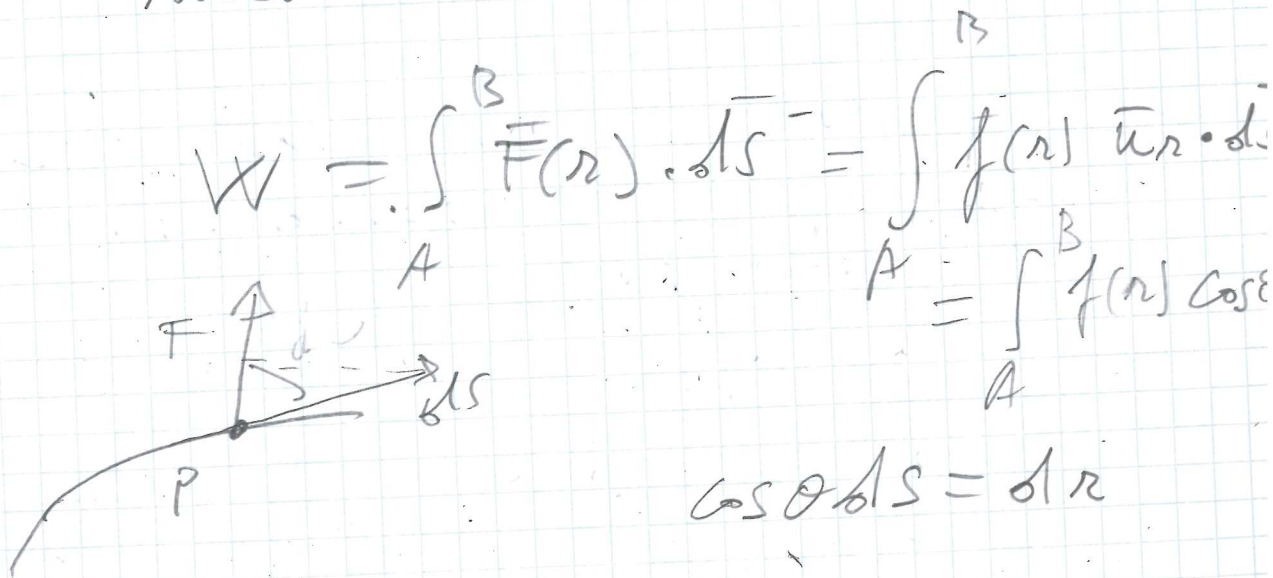 W = ∫_A^B F̄(r) · ds̄ = ∫_A^B f(r) ūr · d
= ∫_A^B f(r) cos
F
ds
P
cos θ ds = dr